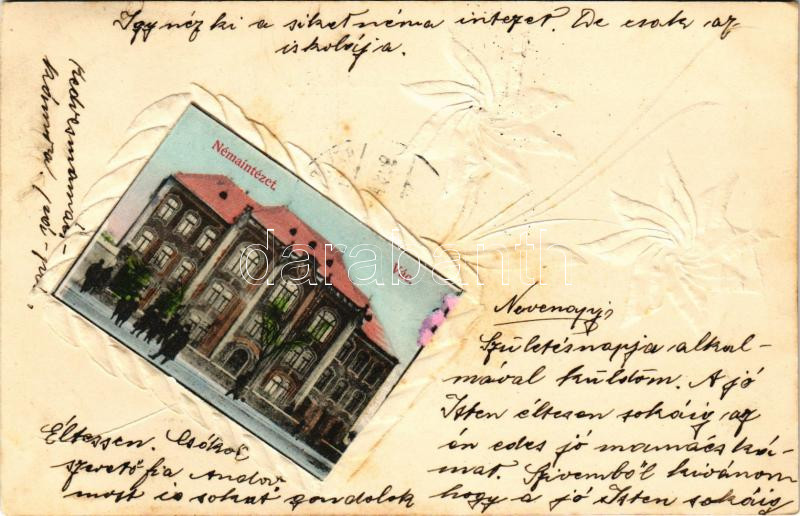 Igy néz ki a siketnéma intézet. De csak az
iskolája.
Kedvesmamács-
kámnak
Némaintézet.
Vác.
darabanth
Nevenapj,
Születésnapja alkal-
mával küldöm. A jó
Isten éltesen sokáig az
én edes jó mamácská-
mat. Szivemből kivánom
hogy a jó Isten sokáig
Éltessen. Csókol
szerető fia Andor
most is sokat gondolok